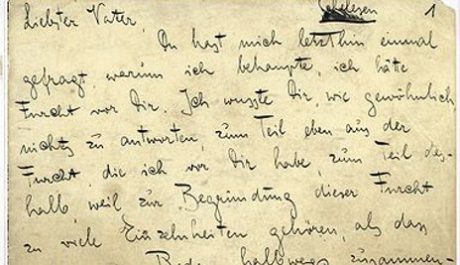 Schelesen 1
Liebster Vater,
Du hast mich letzthin einmal
gefragt, warum ich behaupte, ich hätte
Furcht vor Dir. Ich wusste Dir, wie gewöhnlich,
nichts zu antworten, zum Teil eben aus der
Furcht, die ich vor Dir habe, zum Teil des-
halb, weil zur Begründung dieser Furcht
zu viele Einzelnheiten gehören, als dass
Reden halbwegs zusammen-